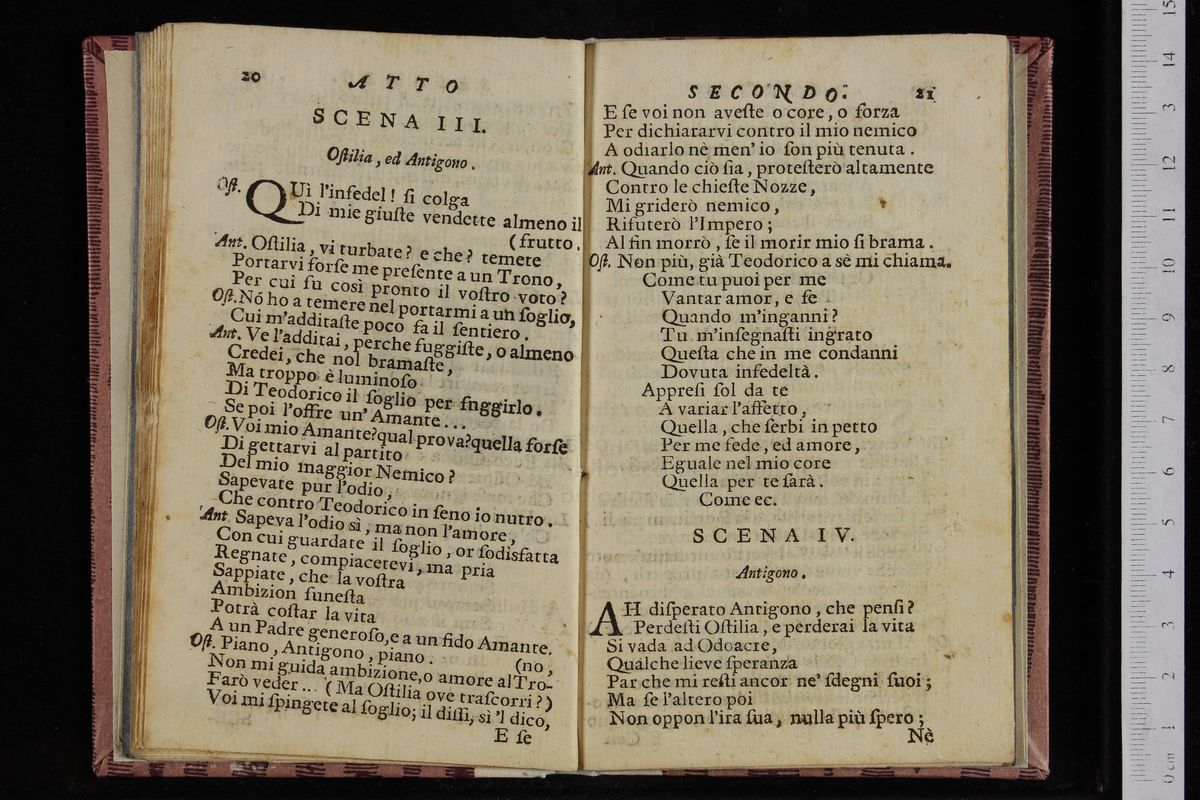 20
ATTO
SCENA III.
Oſtilia, ed Antigono.
Oſt. QUì l'infedel! ſi colga
Di mie giuſte vendette almeno il
(frutto.
Ant. Oſtilia, vi turbate? e che? temete
Portarvi forſe me preſente a un Trono,
Per cui fu così pronto il voſtro voto?
Oſt. Nó ho a temere nel portarmi a un ſoglio,
Cui m'additaſte poco fa il ſentiero.
Ant. Ve l'additai, perche fuggiſte, o almeno
Credei, che nol bramaſte,
Ma troppo è luminoſo
Di Teodorico il ſoglio per fnggirlo.
Se poi l'offre un' Amante...
Oſt. Voi mio Amante? qual prova? quella forſe
Di gettarvi al partito
Del mio maggior Nemico?
Sapevate pur l'odio,
Che contro Teodorico in ſeno io nutro.
Ant. Sapeva l'odio sì, ma non l'amore,
Con cui guardate il ſoglio, or ſodisfatta
Regnate, compiacetevi, ma pria
Sappiate, che la voſtra
Ambizion funeſta
Potrà coſtar la vita
A un Padre generoſo, e a un fido Amante.
Oſt. Piano, Antigono, piano. (no,
Non mi guida ambizione, o amore al Tro-
Farò veder... (Ma Oſtilia ove traſcorri?)
Voi mi ſpingete al ſoglio; il diſſi, sì 'l dico,
E ſe
SECONDO.
21
E ſe voi non aveſte o core, o forza
Per dichiararvi contro il mio nemico
A odiarlo nè men' io ſon più tenuta.
Ant. Quando ciò ſia, proteſterò altamente
Contro le chieſte Nozze,
Mi griderò nemico,
Rifuterò l'Impero;
Al fin morrò, ſe il morir mio ſi brama.
Oſt. Non più, già Teodorico a sè mi chiama.
Come tu puoi per me
Vantar amor, e fe
Quando m'inganni?
Tu m'inſegnaſti ingrato
Queſta che in me condanni
Dovuta infedeltà.
Appreſi ſol da te
A variar l'affetto,
Quella, che ſerbi in petto
Per me fede, ed amore,
Eguale nel mio core
Quella per te ſarà.
Come ec.
SCENA IV.
Antigono.
AH diſperato Antigono, che penſi?
Perdeſti Oſtilia, e perderai la vita
Si vada ad Odoacre,
Qualche lieve ſperanza
Par che mi reſti ancor ne' ſdegni ſuoi;
Ma ſe l'altero poi
Non oppon l'ira ſua, nulla più ſpero;
Nè